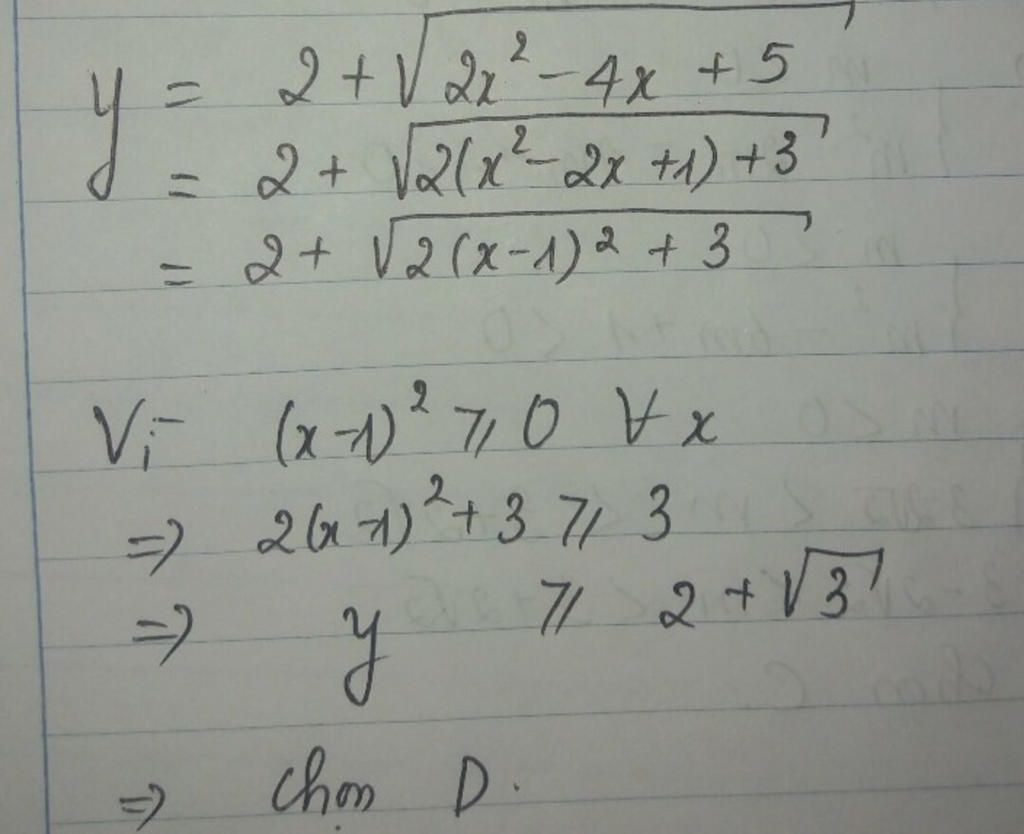 y = 2 + √(2x² - 4x + 5)
= 2 + √(2(x² - 2x + 1) + 3)
= 2 + √(2(x-1)² + 3)
Vì (x-1)² ⩾ 0 ∀ x
=> 2(x-1)² + 3 ⩾ 3
=> y ⩾ 2 + √3
=> Chọn D.